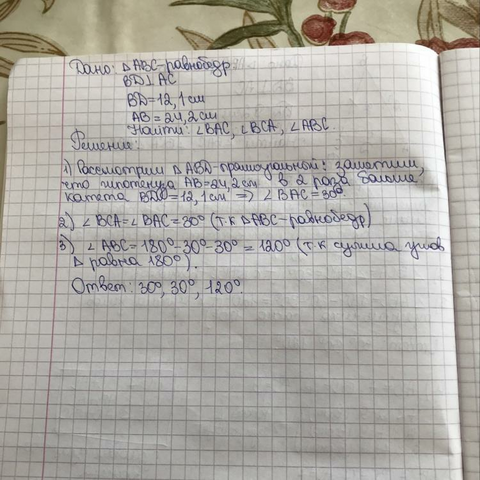 Дано: △ABC-равнобедр
BD⊥AC
BD=12,1см
AB=24,2см
Найти: ∠BAC, ∠BCA, ∠ABC.
Решение:
1) Рассмотрим △ABD-прямоугольный: заметим,
что гипотенуза AB=24,2см в 2 раза больше
катета BD=12,1см => ∠BAC=30°.
2) ∠BCA=∠BAC=30° (т.к △ABC-равнобедр)
3) ∠ABC=180°-30°-30°=120° (т.к сумма углов
△ равна 180°).
Ответ: 30°, 30°, 120°.